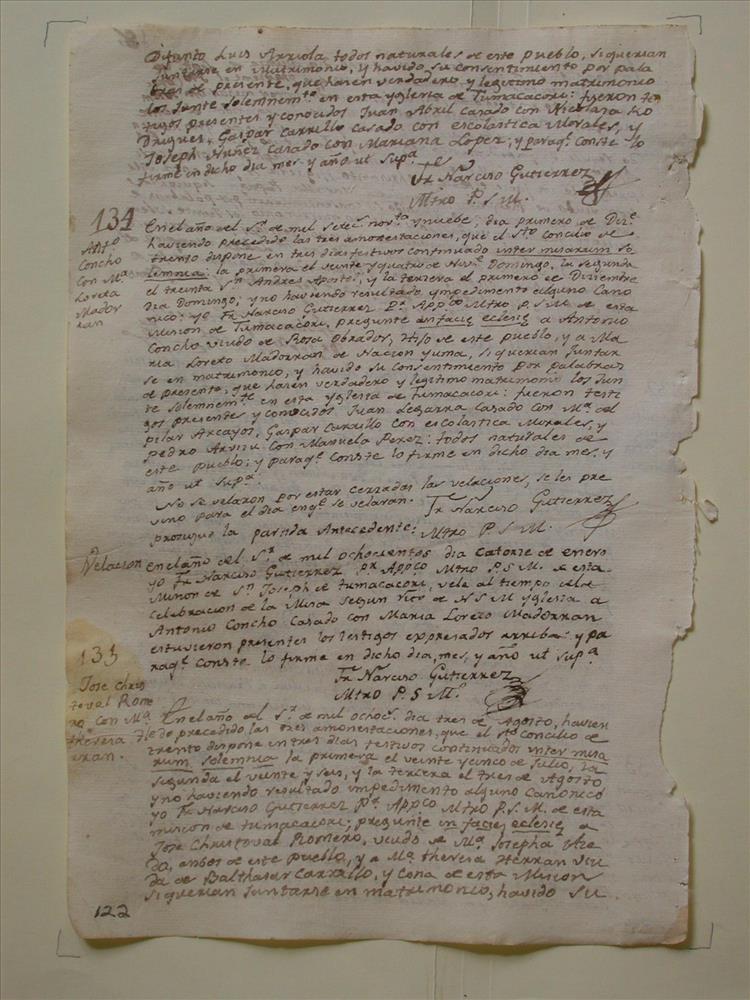 Difunto Luis Arriola, todos naturales de este Pueblo, si querian
Juntarse en Matrimonio, y havido su consentimiento por pala
bras de presente, que hacen verdadero, y legitimo matrimonio
los Junte solemnemte en esta yglesia de Tumacacori: fueron tes
tigos presentes y conocidos Juan Abril casado con Nicolasa Ro
driguez, Gaspar Carrillo casado con escolastica Morales, y
Joseph Nuñez casado con Mariana Lopez, y paraqe conste lo
firme en dicho dia mes y año ut supa
Fr Narciso Gutierrez
Mtro P. S M.
134
Anto
Concho
con Ma
Loreta
Mador
ran
En el año del Sr de mil setecs novta ynuebe, dia primero de Dize
haviendo precedido las tres amonestaciones, que el Sto concilio de
trento dispone en tres dias festivos continuado inter misarum so
lemnia: la primera el veinte y quatro de Nove Domingo, la segunda
el treinta Sn Andres Apostol, y la tercera el primero de Diziembre
dia Domingo; y no haviendo resultado ympedimento alguno Cano
nico: yo Fr Narciso Gutierrez Pr Appco Mtro P. S M. de esta
Mision de Tumacacori, pregunte in facie eclesie a Antonio
Concho viudo de Rosa Obrador, Hijo de este pueblo, y a Ma
ria Loreto Madorran de Nacion yuma, si querian Juntar
se en matrimonio, y havido su consentimiento por palabras
de presente, que hacen verdadero y legitimo matrimonio los Jun
te solemnemte en esta yglesia de Tumacacori: fueron testi
gos presentes y conocidos Juan Legarra casado con Ma del
pilar Arcayos, Gaspar Carrillo con escolastica Morales, y
pedro Arvizu con Manuela Perez: todos naturales de
este pueblo; y paraqe conste lo firme en dicho dia mes, y
año ut supa
No se velaron por estar cerradas las velaciones, se les pre
vino para el dia enqe se velaran. Fr Narciso Gutierrez
prosigue la partida Antecedente: Mtro P. S M.
Velacion
En el año del Sr de mil ochocientos dia catorze de enero
yo Fr Narciso Gutierrez Pr Appco Mtro P. S M. de esta
Mision de Sn Joseph de tumacacori, vele al tiempo de la
celebracion de la Misa segun rito de N S M yglesia a
Antonio Concho casado con Maria Loreto Madorran
estuvieron presentes los testigos expresados arriba: y pa
raqe conste lo firme en dicho dia, mes, y año ut supa
Fr Narciso Gutierrez
Mtro P. S M.
135
Jose Chris
toval Rome
ro con Ma
theresa He
rran.
En el año del Sr de mil ochocs dia tres de Agosto, havien
do precedido las tres amonestaciones, que el Sto concilio de
trento dispone en tres dias festivos continuados inter misa
rum solemnia la primera el veinte y cinco de Julio, la
segunda el veinte y seis, y la tercera el tres de Agosto
y no haviendo resultado impedimento alguno Canonico
yo Fr Narciso Gutierrez Pr Appco Mtro P. S. M. de esta
mision de tumacacori; pregunte in facie eclesie a
Jose Christoval Romero, viudo de Ma Josepha
ambos de este Pueblo, y a Ma theresa Herran viu
da de Balthasar Carrillo, y de esta Mision
si querian Juntarse en matrimonio, havido su
122